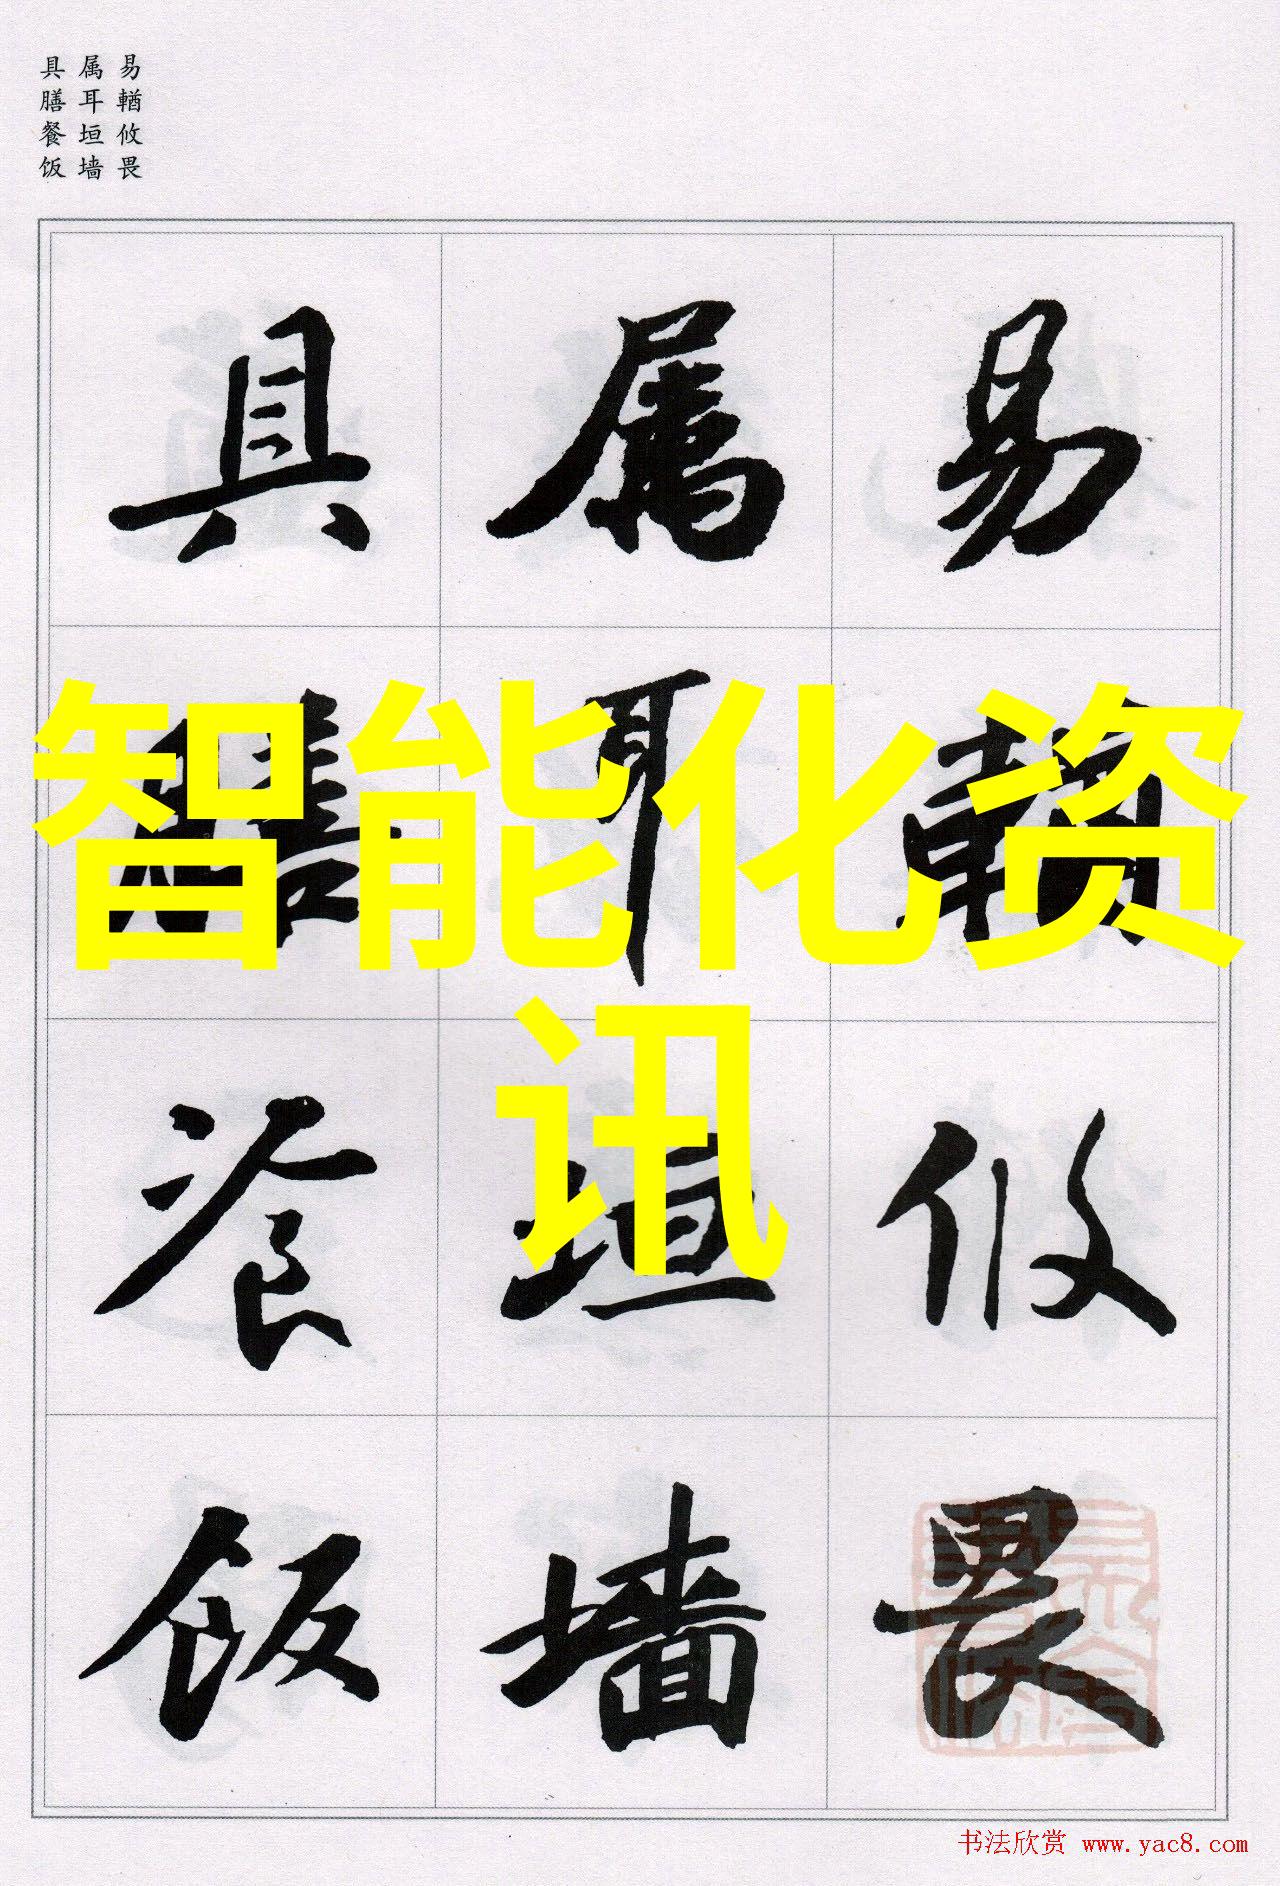 易輶攸畏
属耳垣墙
具膳餐饭
易輶攸畏
属耳垣墙
具膳餐饭
智能化资
讯
书法欣赏 www.yac8.com